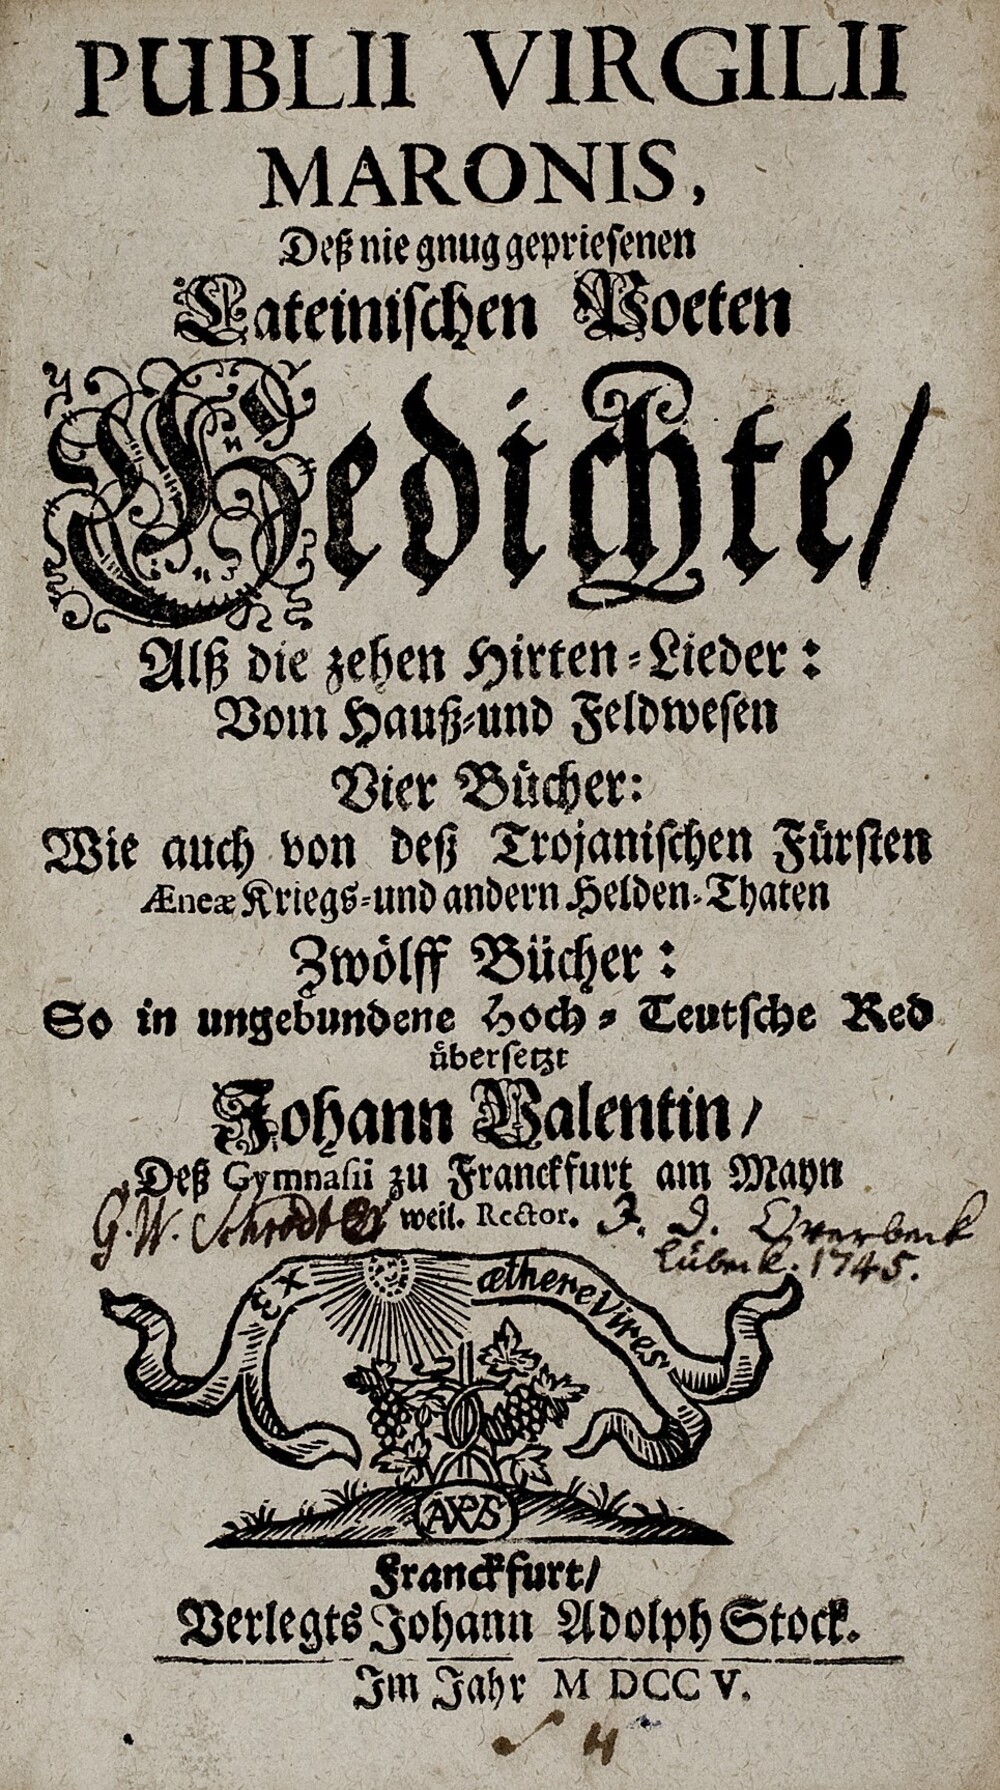 PUBLII VIRGILII
MARONIS,
Deß nie gnug gepriesenen
Lateinischen Poeten
Gedichte/
Alß die zehen Hirten-Lieder:
Vom Hauß-und Feldwesen
Vier Bücher:
Wie auch von deß Trojanischen Fürsten
Æneæ Kriegs-und andern Helden-Thaten
Zwölff Bücher:
So in ungebundene Hoch-Teutsche Red
übersetzt
Johann Valentin/
Deß Gymnasii zu Franckfurt am Mayn
weil. Rector.
G. W.
J. D. Overbeck
Lübeck. 1745.
EX æthere Vires
Franckfurt/
Verlegts Johann Adolph Stock.
Im Jahr M DCC V.
4